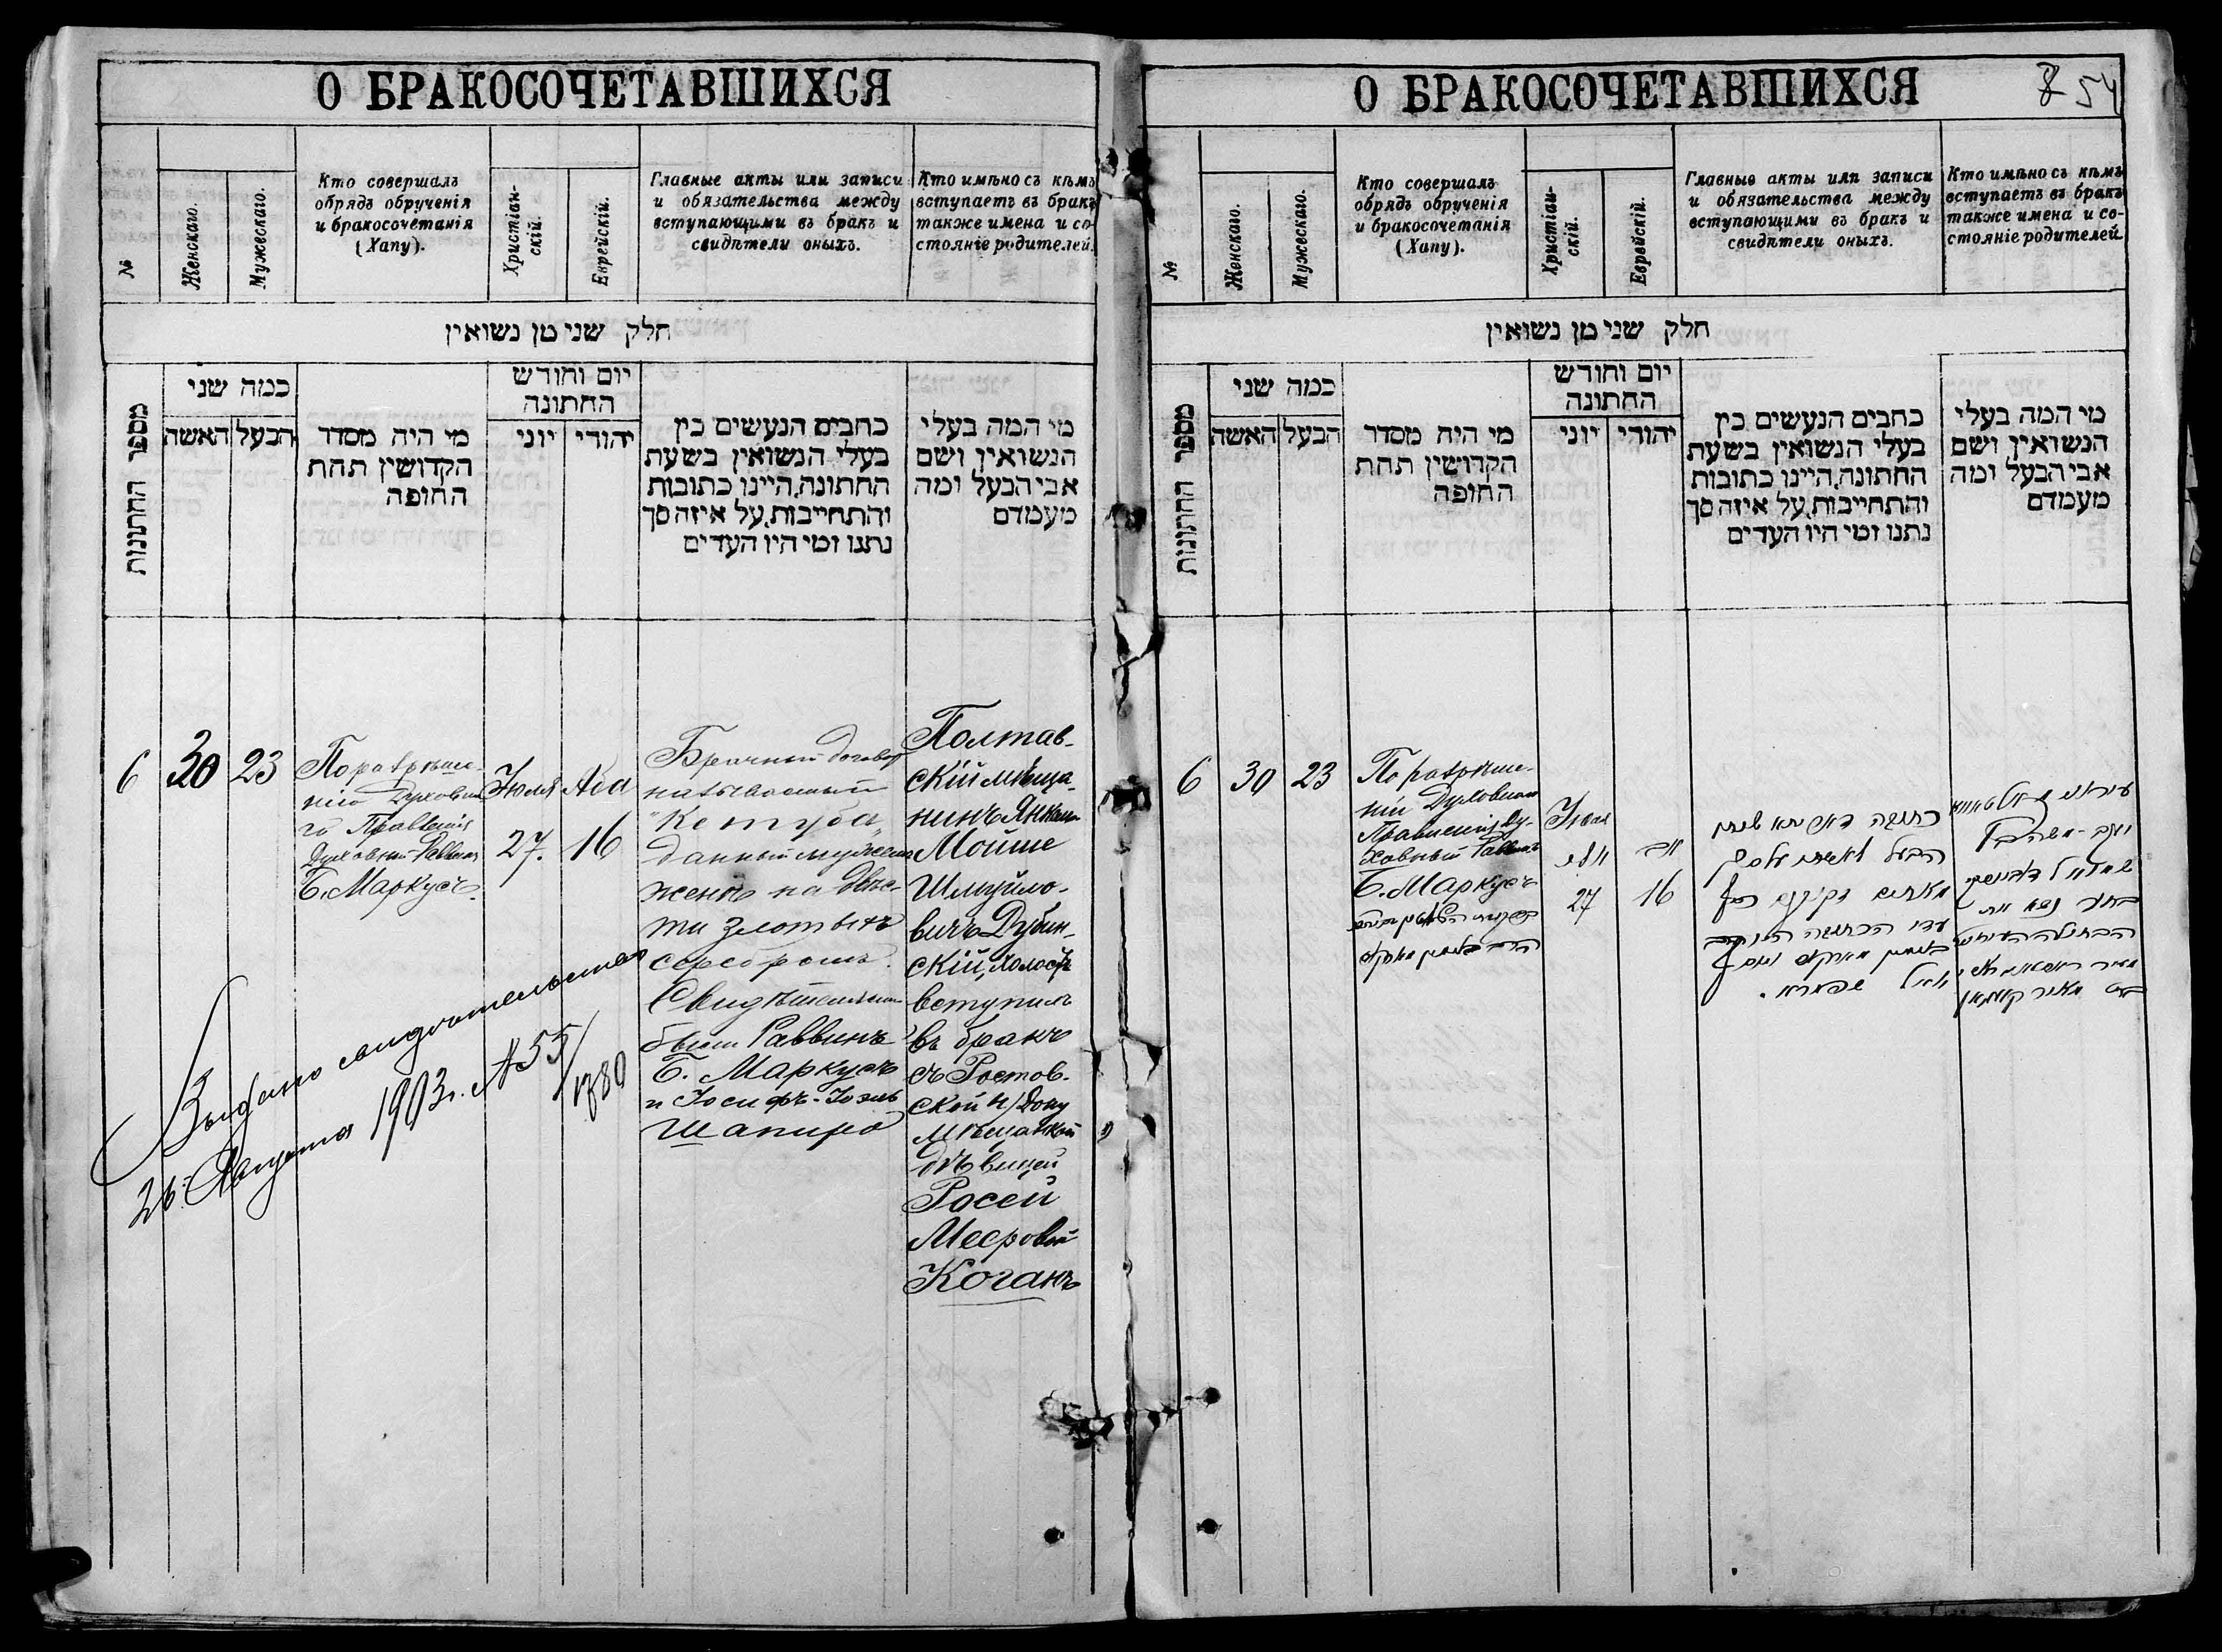 О БРАКОСОЧЕТАВШИХСЯ
№
Женскаго.
Мужескаго.
Кто совершалъ
обрядъ обрученія
и бракосочетанія
(Хапу).
Христіан-
скій.
Еврейскій.
Главные акты или записи
и обязательства между
вступающими въ бракъ и
свидѣтели оныхъ.
Кто имѣно съ кѣмъ
вступаетъ въ бракъ
также имена и со-
стояніе родителей.
חלק שני מן נשואין
מספר החתונות
כמה שני
האשה
הבעל
מי היה מסדר
הקדושין תחת
החופה
יום וחודש
החתונה
יוני
יהודי
כתבים הנעשים בין
בעלי הנשואין בשעת
החתונה, היינו כתובות
והתחייבות, על איזה סך
נתנו ומי היו העדים
מי המה בעלי
הנשואין ושם
אבי הבעל ומה
מעמדם
6
30
23
По разрѣше-
нію Духовна
го Правленія
Духовный Раввинъ
Б. Маркусъ.
Іюля
27.
Ава
16
Брачный договор
называемый
"Кетуба"
данный мужемъ
женѣ на двѣс-
ти злотыхъ
серебромъ.
Свидѣтелями
были Раввинъ
Б. Маркусъ
и Іосифъ-Іоэль
Шапиро
Полтав-
скій мѣща-
нинъ Янкель
Мойше
Шмуйло-
вичъ Дубин-
скій, холостъ
вступилъ
въ бракъ
съ Ростов-
ской н/Дону
мѣщанкой
дѣвицей
Росей
Мееровой
Коганъ
Выдано свидѣтельство
26. Августа 1903 г. № 55/1380
О БРАКОСОЧЕТАВШИХСЯ
8 54
№
Женскаго.
Мужескаго.
Кто совершалъ
обрядъ обрученія
и бракосочетанія
(Хапу).
Христіан-
скій.
Еврейскій.
Главные акты или записи
и обязательства между
вступающими въ бракъ и
свидѣтели оныхъ.
Кто имѣно съ кѣмъ
вступаетъ въ бракъ
также имена и со-
стояніе родителей
חלק שני מן נשואין
מספר החתונות
כמה שני
האשה
הבעל
מי היה מסדר
הקדושין תחת
החופה
יום וחודש
החתונה
יוני
יהודי
כתבים הנעשים בין
בעלי הנשואין בשעת
החתונה, היינו כתובות
והתחייבות, על איזה סך
נתנו ומי היו העדים
מי המה בעלי
הנשואין ושם
אבי הבעל ומה
מעמדם
6
30
23
По разрѣше-
нію Духовнаго
Правленія Ду-
ховный Раввинъ
Б. Маркусъ
Іюля
יולי
27
אב
16
הבעל
מאתים
עדי הכתובה
שפירא.
יעקב-משה
שמואל
בחור נשא את
הבתולה